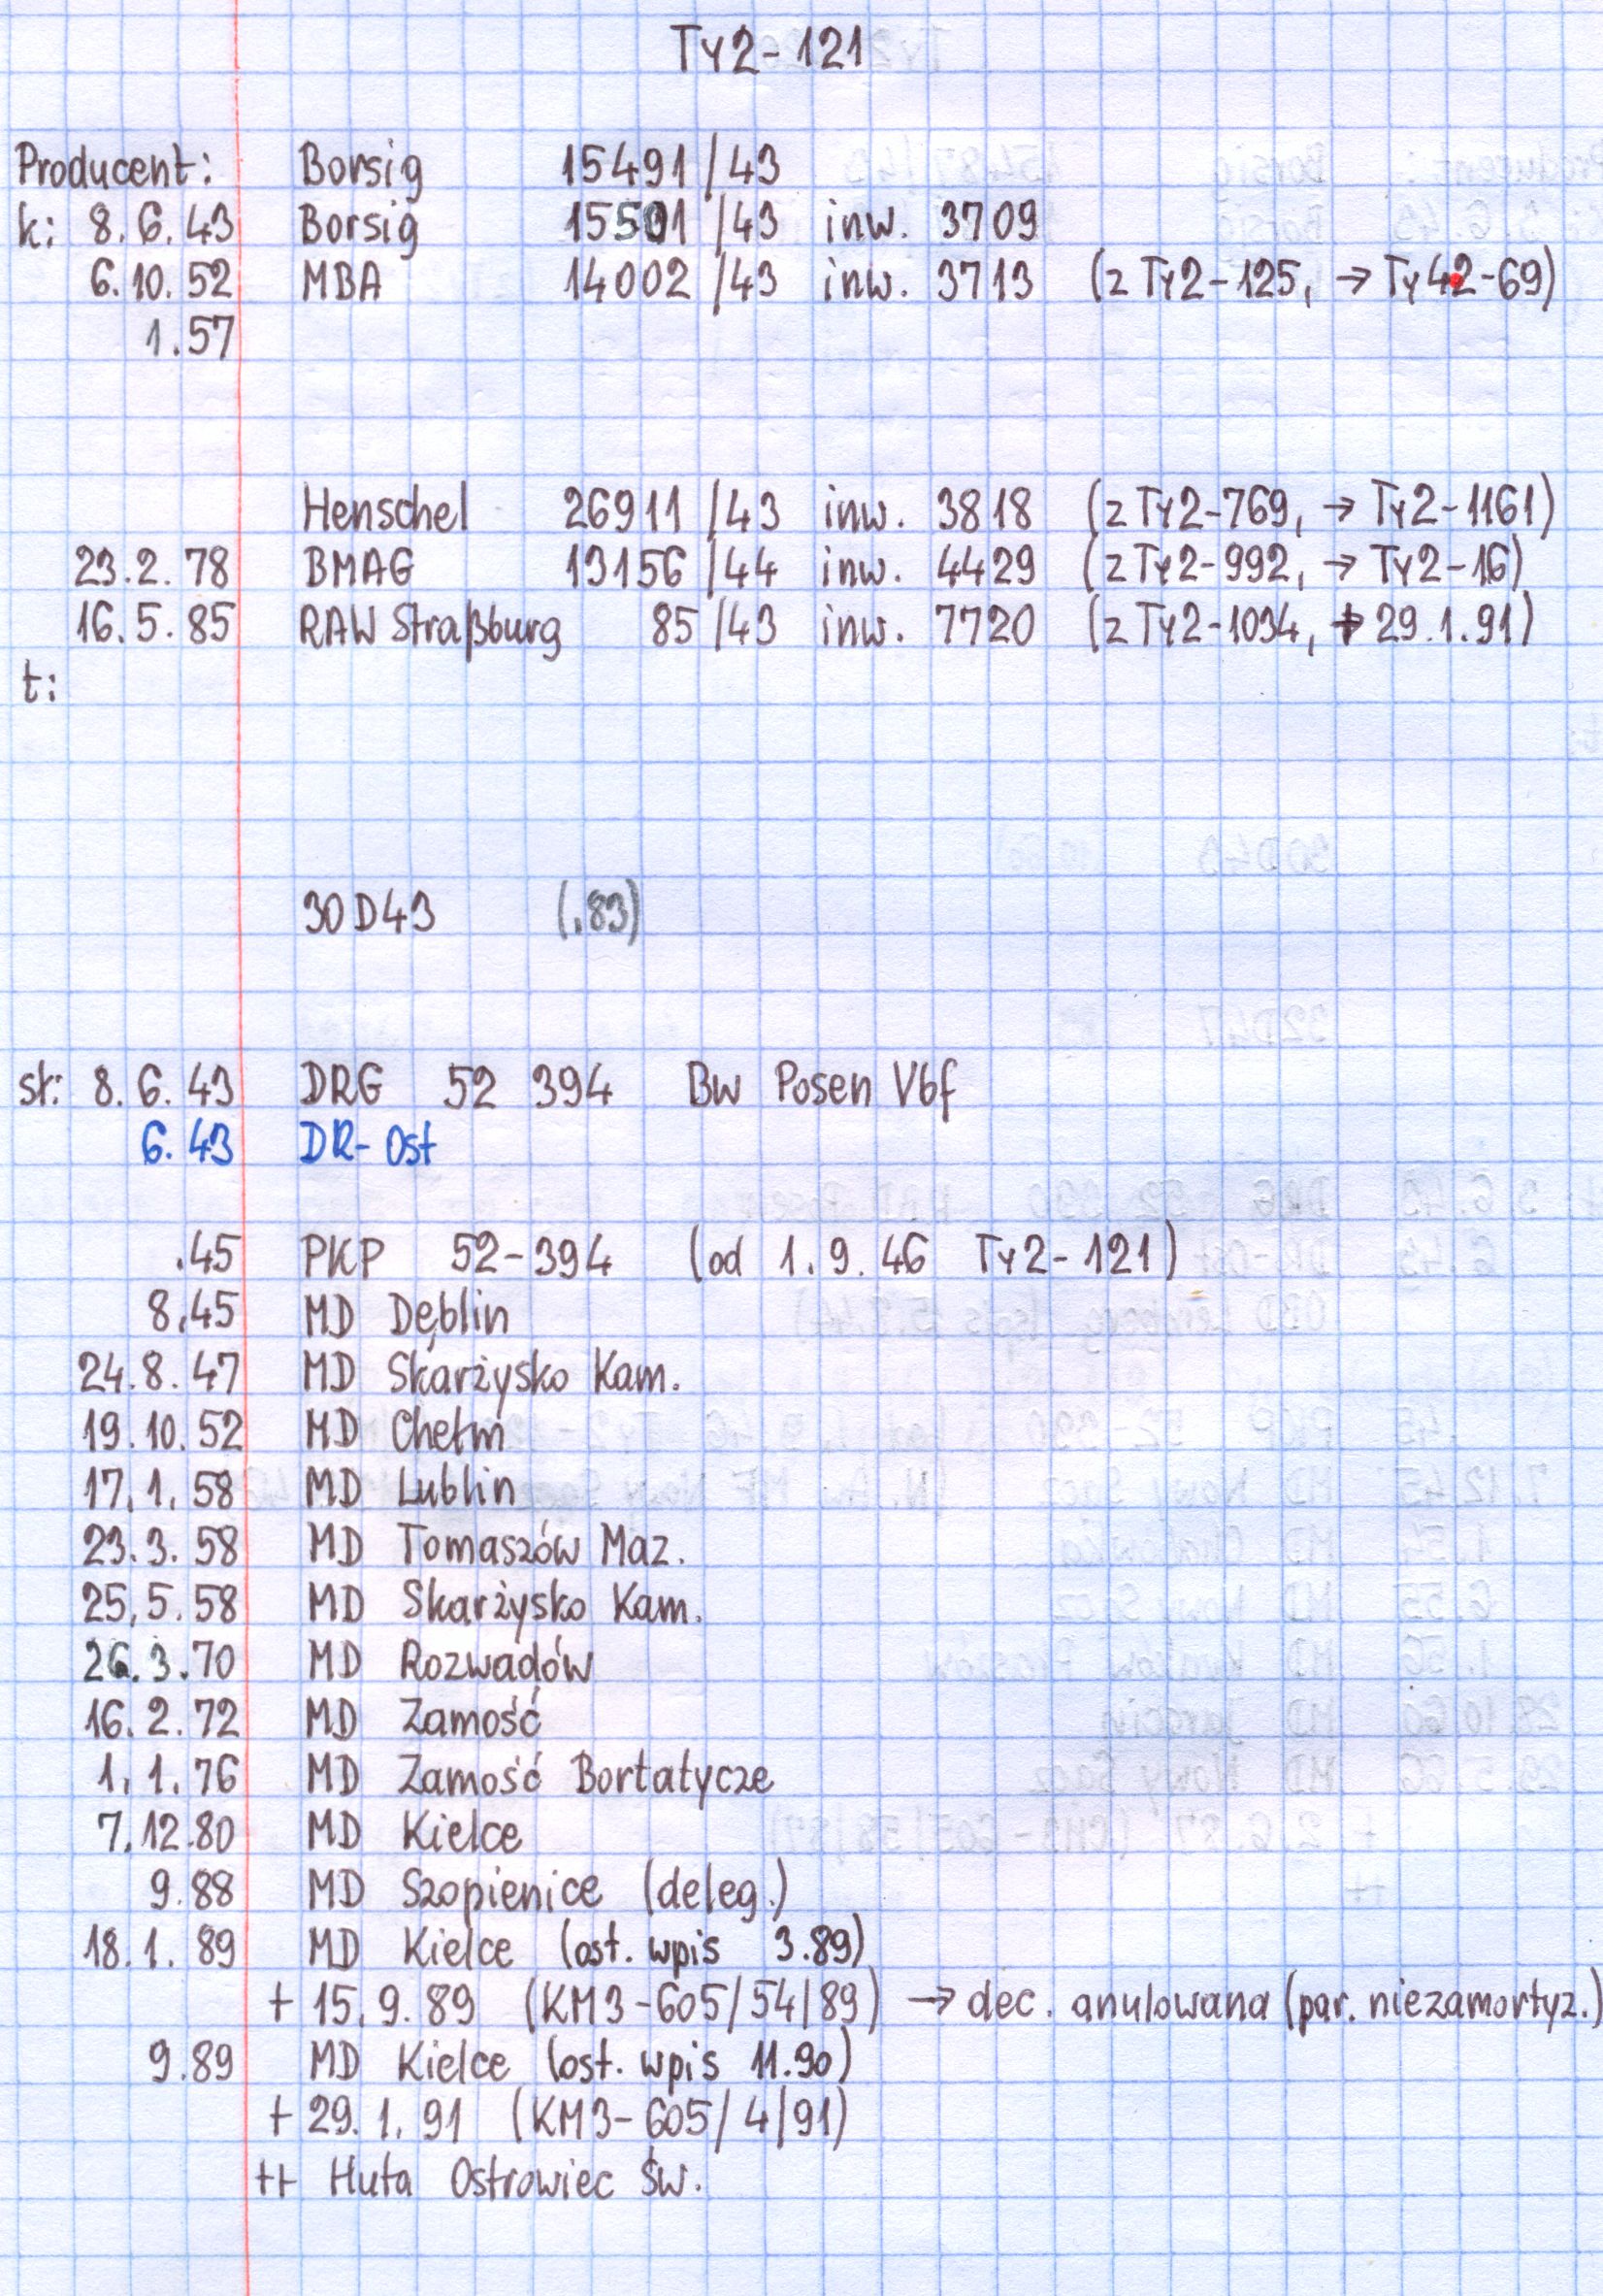 Ty2-121
Producent: Borsig 15491/43
k: 8.6.43 Borsig 15501/43 inw. 3709
6.10.52 MBA 14002/43 inw. 3713 (z Ty2-125, → Ty42-69)
1.57
Henschel 26911/43 inw. 3818 (z Ty2-769, → Ty2-1161)
23.2.78 BMAG 13156/44 inw. 4429 (z Ty2-992, → Ty2-16)
16.5.85 RAW Straßburg 85/43 inw. 7720 (z Ty2-1034, + 29.1.91)
t:
30D43 (.83)
st: 8.6.43 DRG 52 394 Bw Posen Vbf
6.43 DR-Ost
.45 PKP 52-394 (od 1.9.46 Ty2-121)
8.45 MD Dęblin
24.8.47 MD Skarżysko Kam.
19.10.52 MD Chełm
17.1.58 MD Lublin
23.3.58 MD Tomaszów Maz.
25.5.58 MD Skarżysko Kam.
26.3.70 MD Rozwadów
16.2.72 MD Zamość
1.1.76 MD Zamość Bortatycze
7.12.80 MD Kielce
9.88 MD Szopienice (deleg.)
18.1.89 MD Kielce (ost. wpis 3.89)
+ 15.9.89 (KM3-605/54/89) → dec. anulowana (par. niezamortyz.)
9.89 MD Kielce (ost. wpis 11.90)
+ 29.1.91 (KM3-605/4/91)
++ Huta Ostrowiec Św.